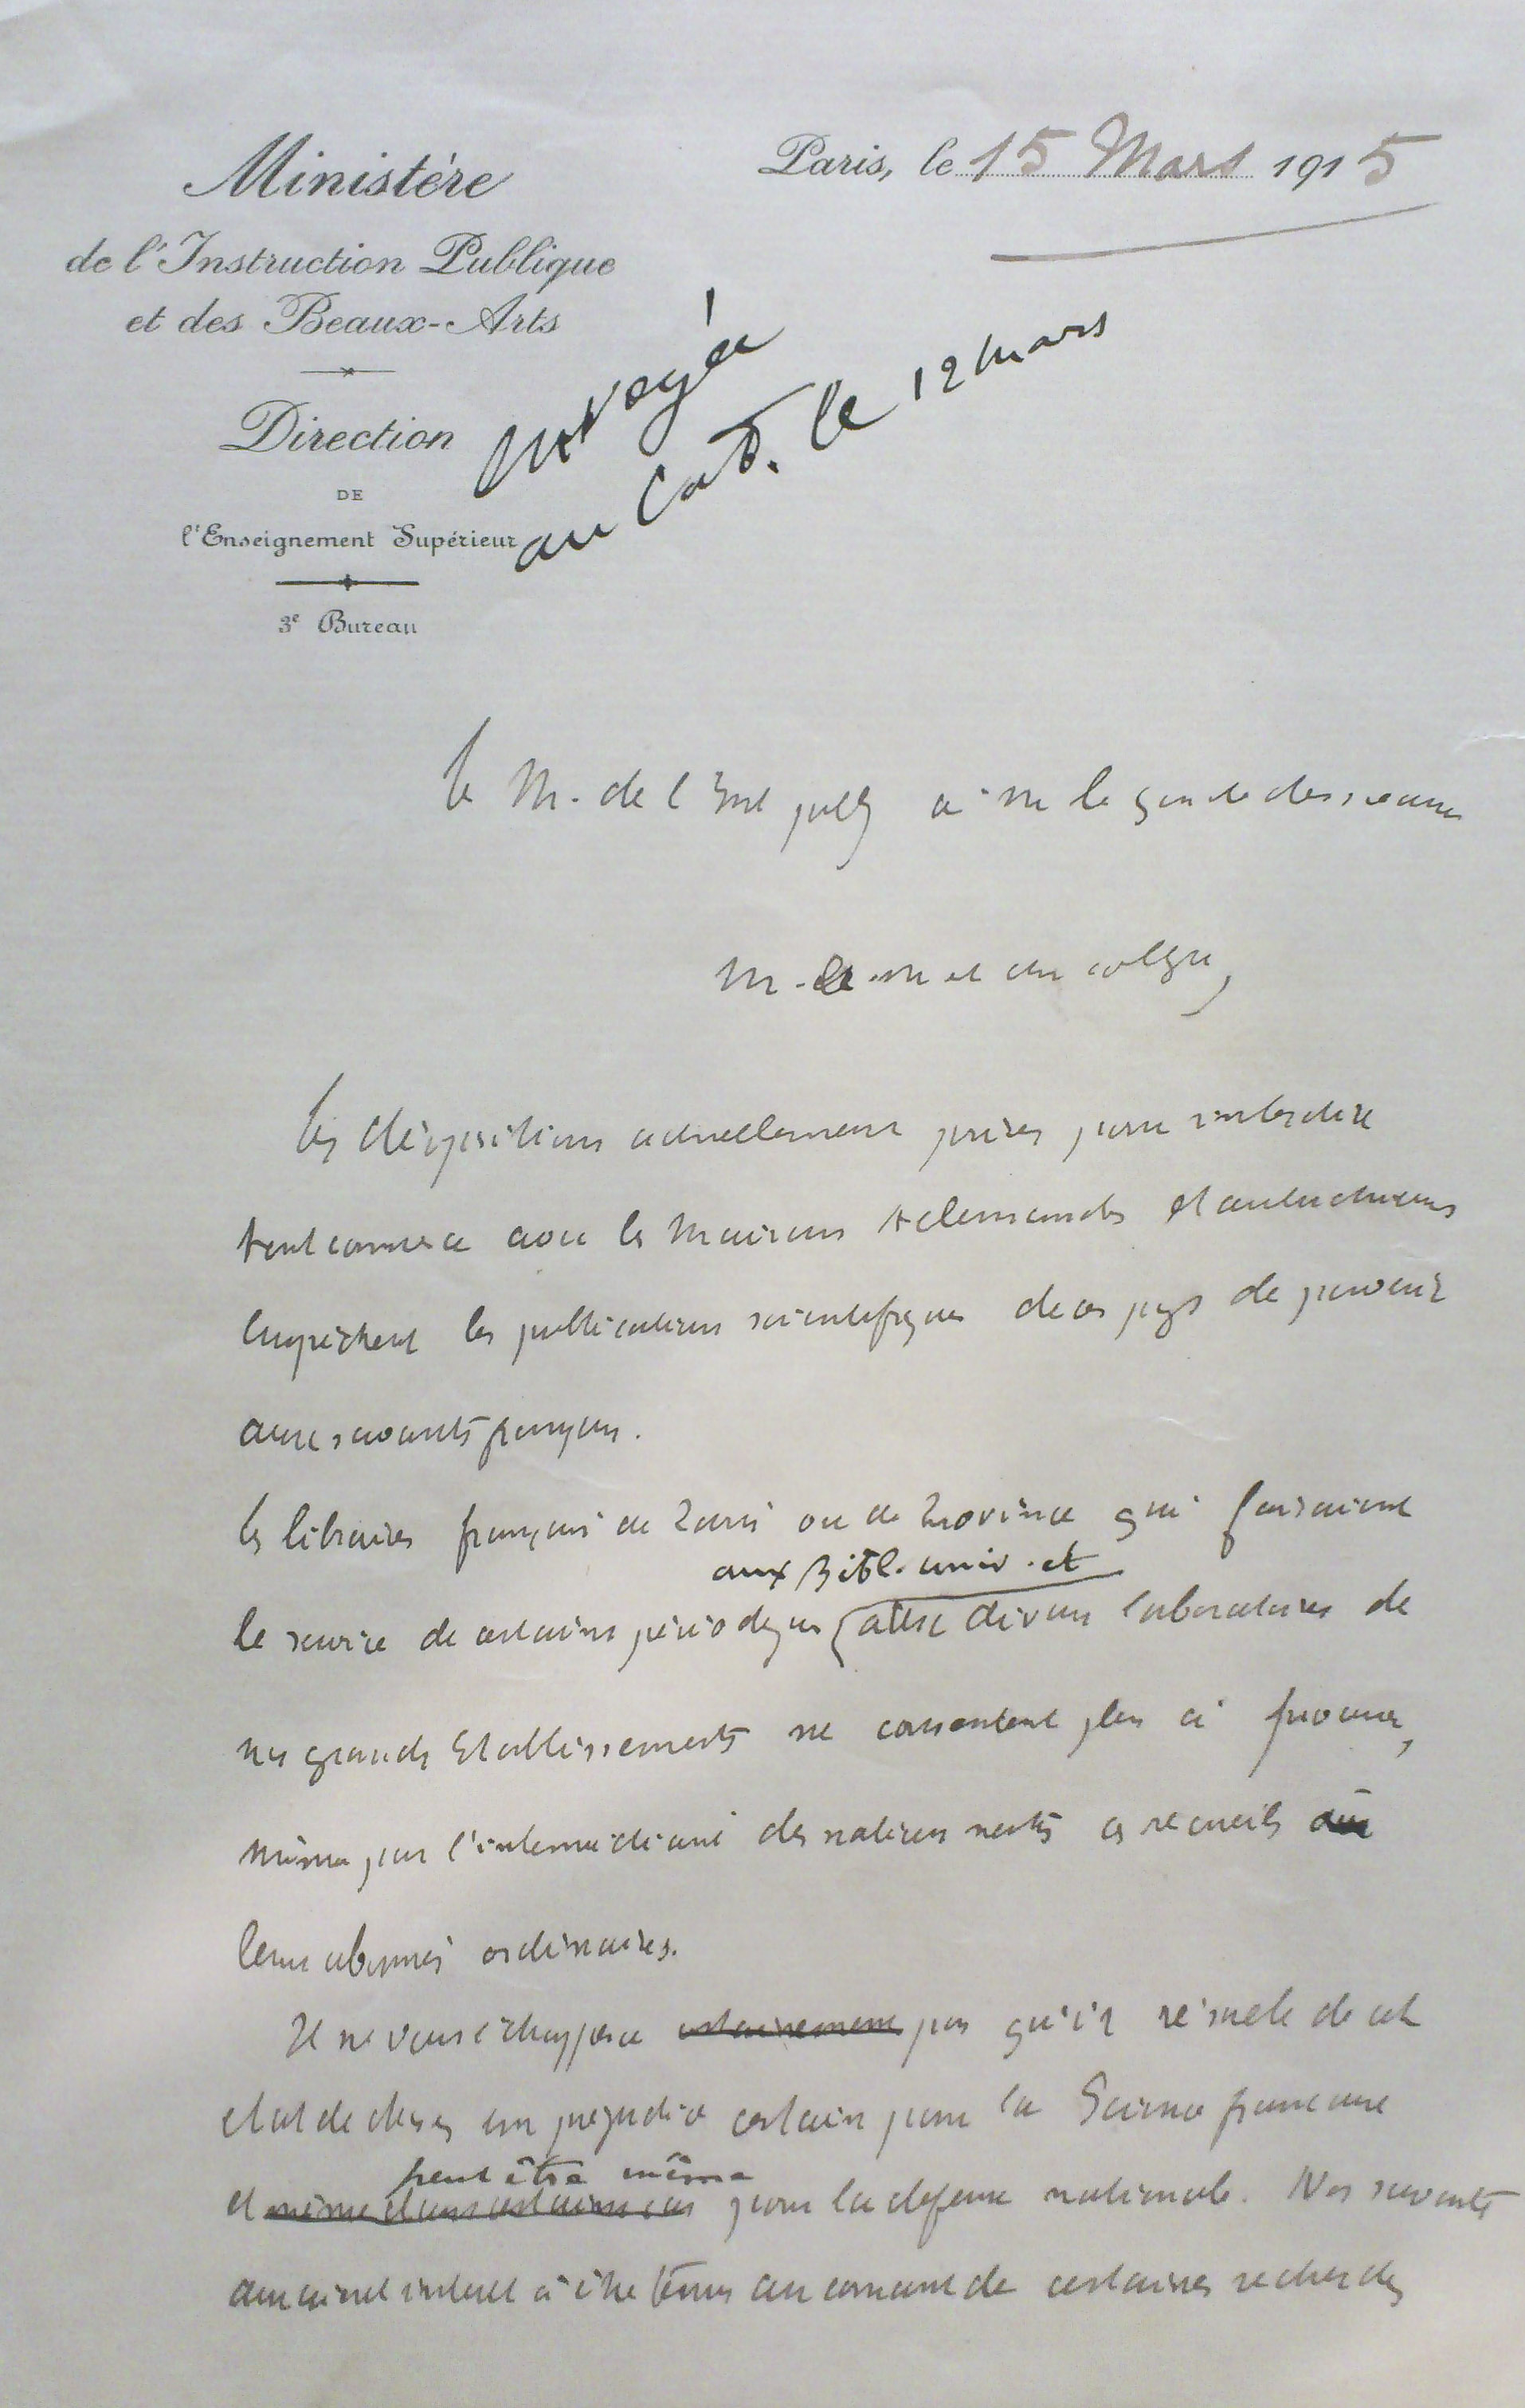 Ministère
de l'Instruction Publique
et des Beaux-Arts
Direction
DE
l'Enseignement Supérieur
3e Bureau
Paris, le 15 Mars 1915
envoyée
au Cab. le 12 mars
Le M. de l'Inst publ à M le garde des sceaux
M. le M et cher collègue,
Les dispositions actuellement prises pour interdire
tout commerce avec les Maisons Allemandes et autrichiennes
empêchent les publications scientifiques de ces pays de parvenir
aux savants français.
Les libraires français de Paris ou de Province qui faisaient
aux Bibl. univ. et
le service de certains périodiques aux divers laboratoires de
nos grands Etablissements ne consentent plus à procurer,
même par l'intermédiaire des nations neutres ces recueils à
leurs abonnés ordinaires.
Il ne vous échappera certainement pas qu'il résulte de cet
etat de choses un préjudice certain pour la Science française
peut être même
et même dans certains cas pour la defense nationale. Nos savants
auraient interet à être tenus au courant de certaines recherches